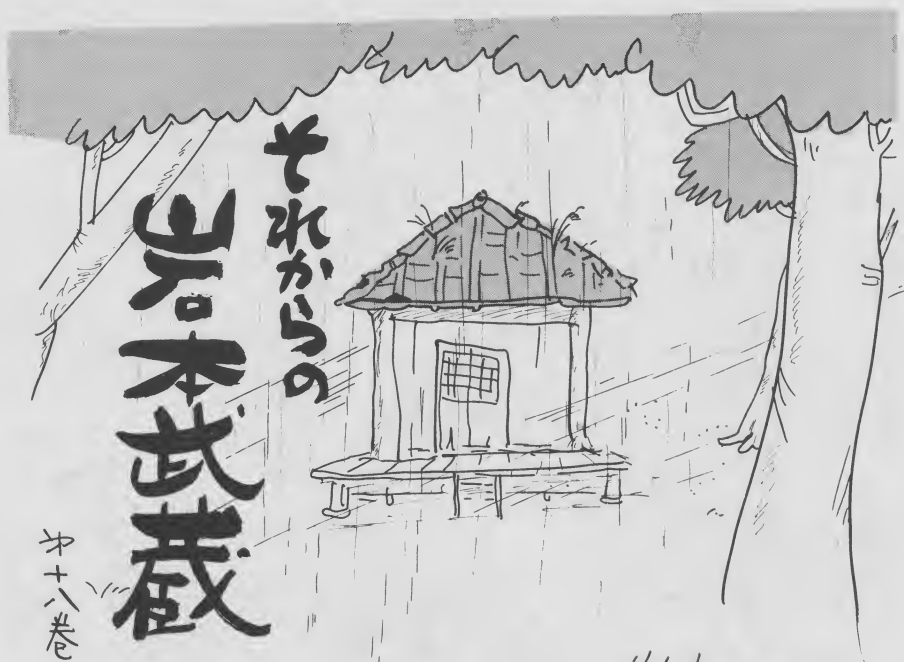 それからの
岩本武蔵
第十八巻